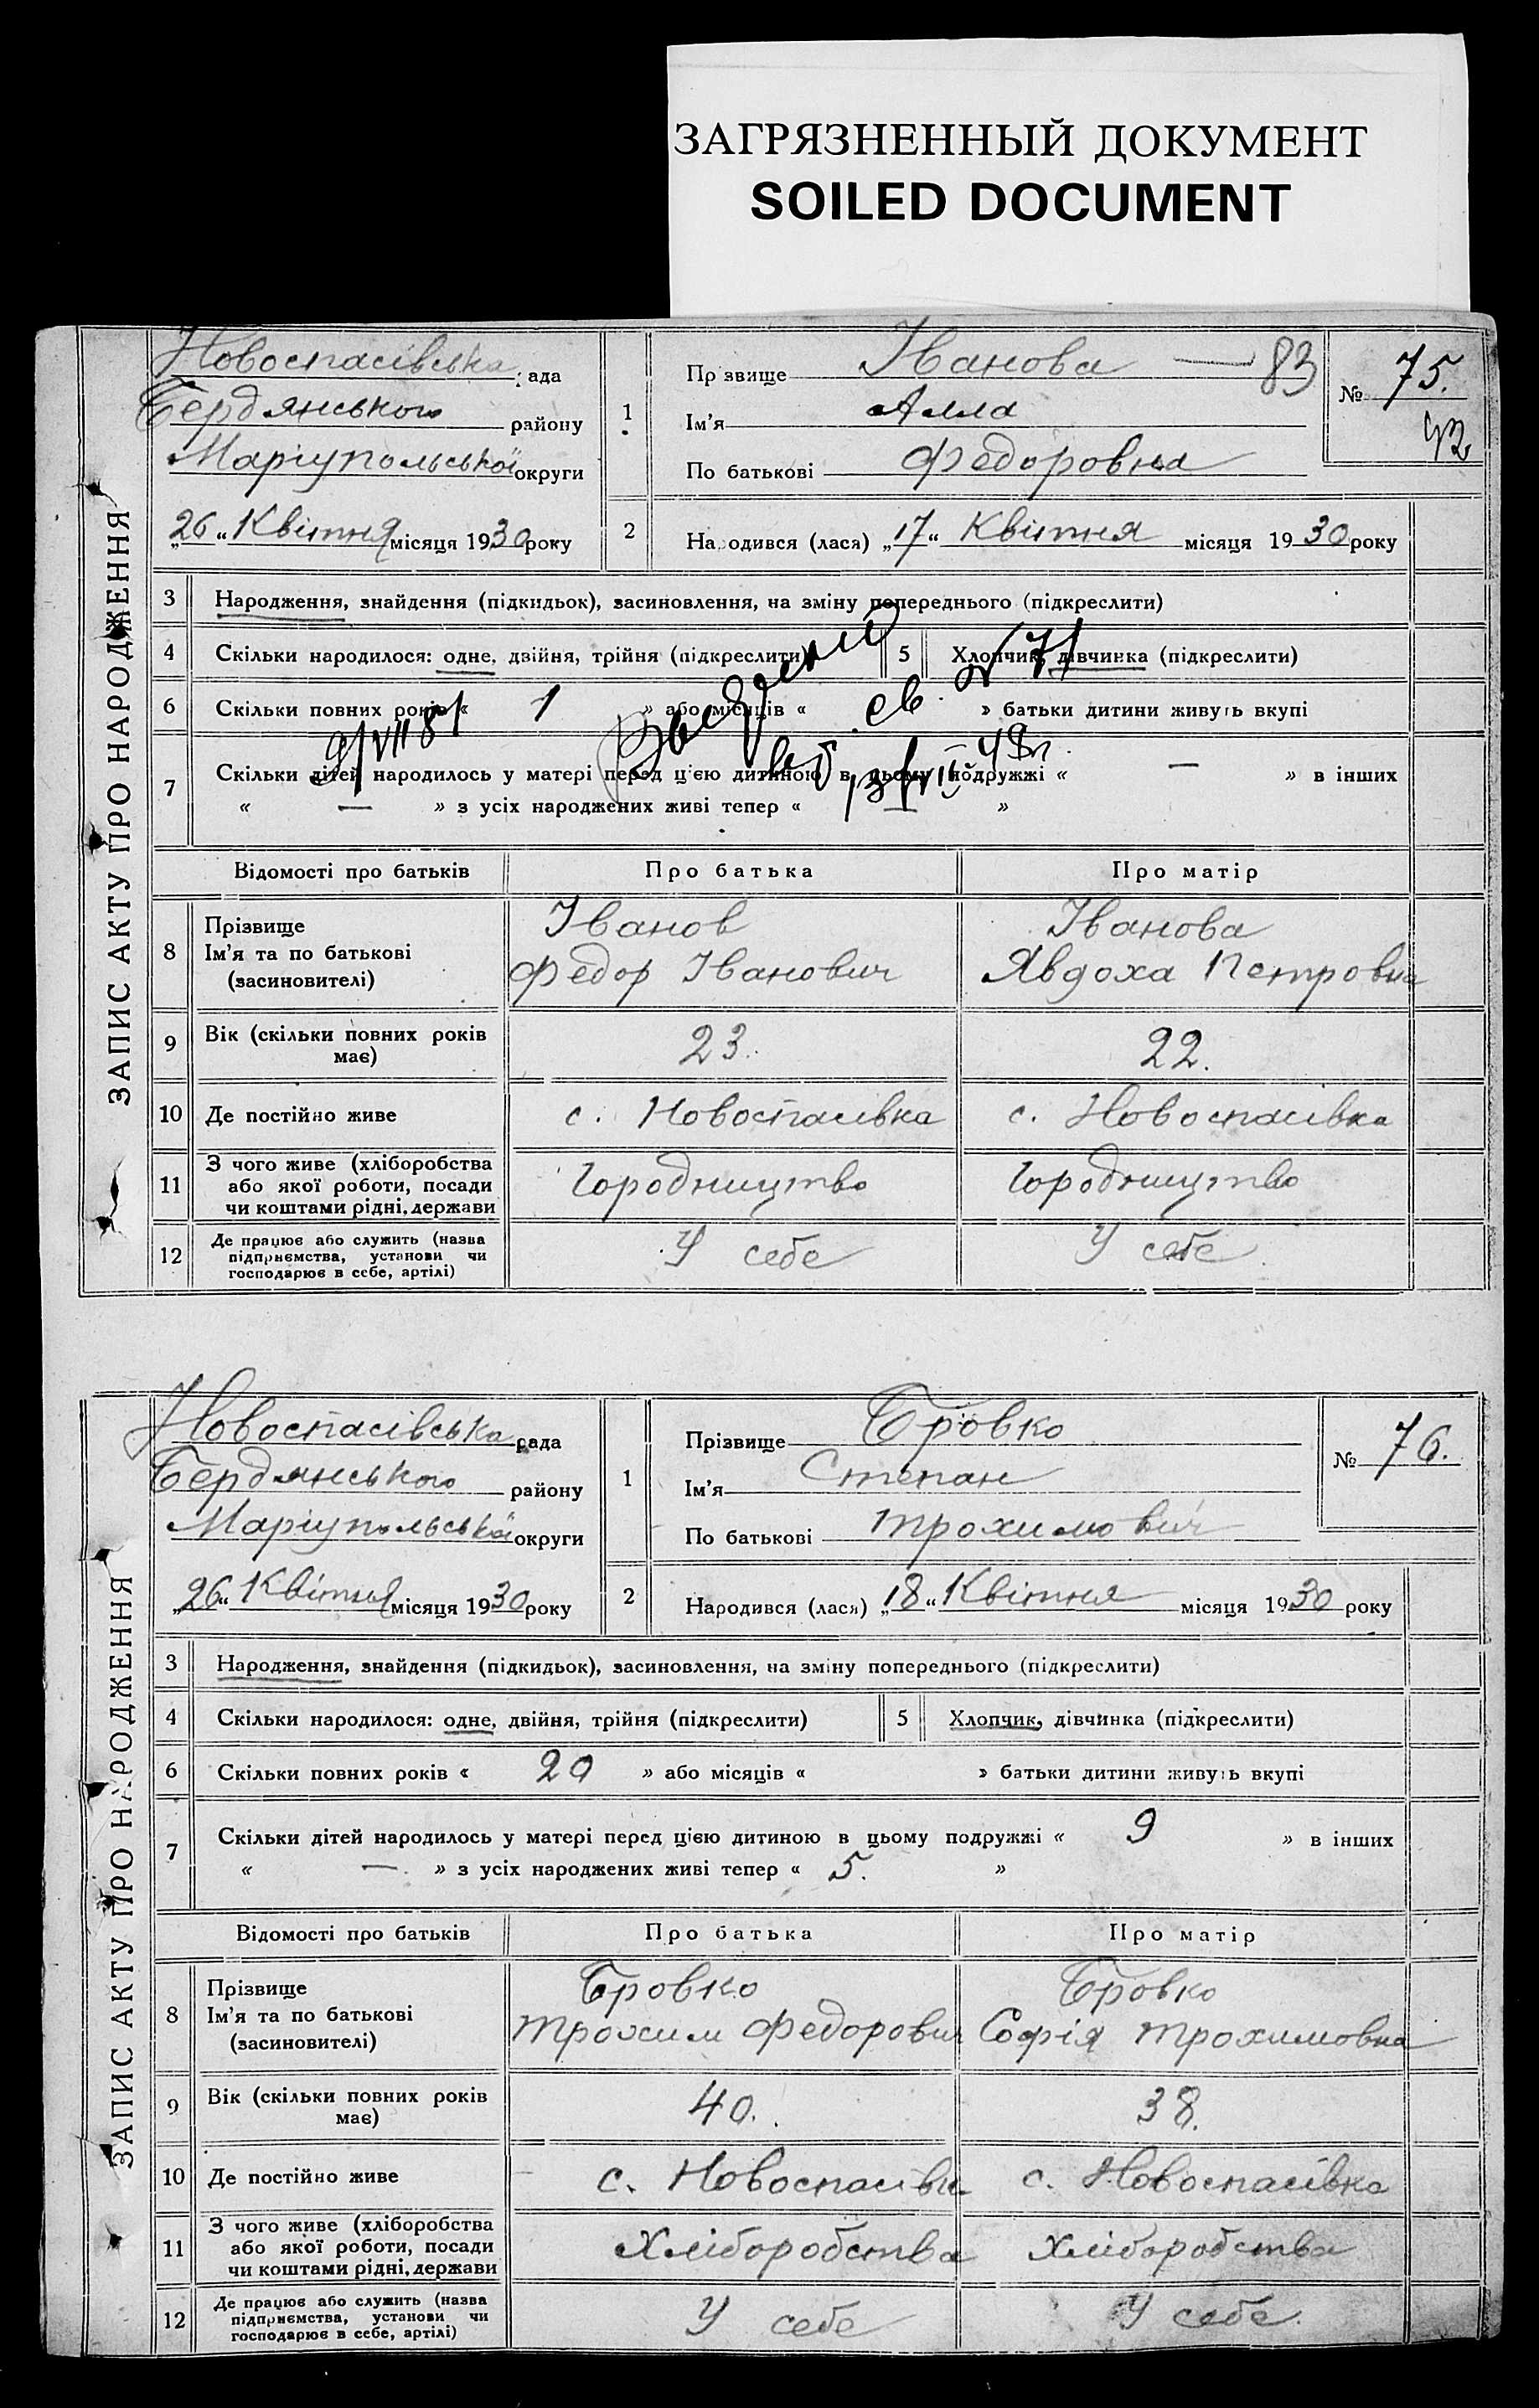 ЗАГРЯЗНЕННЫЙ ДОКУМЕНТ
SOILED DOCUMENT
ЗАПИС АКТУ ПРО НАРОДЖЕННЯ
Новоспасівська рада
Бердянського району
Маріупольської округи
„26“ Квітня місяця 1930 року
1
Прізвище Іванова — 83
Ім'я Алла
По батькові Федоровна
№ 75.
2
Народився (лася) „17“ Квітня місяця 1930 року
3 Народження, знайдення (підкидьок), засиновлення, на зміну попереднього (підкреслити)
4 Скільки народилося: одне, двійня, трійня (підкреслити) 5 Хлопчик, дівчинка (підкреслити)
6 Скільки повних років « 1 » або місяців « » батьки дитини живуть вкупі
7 Скільки дітей народилось у матері перед цією дитиною в цьому подружжі « — » в інших
« — » з усіх народжених живі тепер « — »
Відомості про батьків Про батька Про матір
8 Прізвище Іванов Іванова
Ім'я та по батькові Федор Іванович Явдоха Петровна
(засиновителі)
9 Вік (скільки повних років має) 23. 22.
10 Де постійно живе с. Новоспасівка с. Новоспасівка
11 З чого живе (хліборобства
або якої роботи, посади Городництво Городництво
чи коштами рідні, держави
12 Де працює або служить (назва
підприємства, установи чи У себе У себе
господарює в себе, артілі)
ЗАПИС АКТУ ПРО НАРОДЖЕННЯ
Новоспасівська рада
Бердянського району
Маріупольської округи
„26“ Квітня місяця 1930 року
1
Прізвище Бровко
Ім'я Степан
По батькові Трохимович
№ 76.
2
Народився (лася) „18“ Квітня місяця 1930 року
3 Народження, знайдення (підкидьок), засиновлення, на зміну попереднього (підкреслити)
4 Скільки народилося: одне, двійня, трійня (підкреслити) 5 Хлопчик, дівчинка (підкреслити)
6 Скільки повних років « 20 » або місяців « » батьки дитини живуть вкупі
7 Скільки дітей народилось у матері перед цією дитиною в цьому подружжі « 9 » в інших
« — » з усіх народжених живі тепер « 5. »
Відомості про батьків Про батька Про матір
8 Прізвище Бровко Бровко
Ім'я та по батькові Трохим Федорович Софія Трохимовна
(засиновителі)
9 Вік (скільки повних років має) 40. 38.
10 Де постійно живе с. Новоспасівка с. Новоспасівка
11 З чого живе (хліборобства
або якої роботи, посади Хліборобства Хліборобства
чи коштами рідні, держави
12 Де працює або служить (назва
підприємства, установи чи У себе У себе
господарює в себе, артілі)